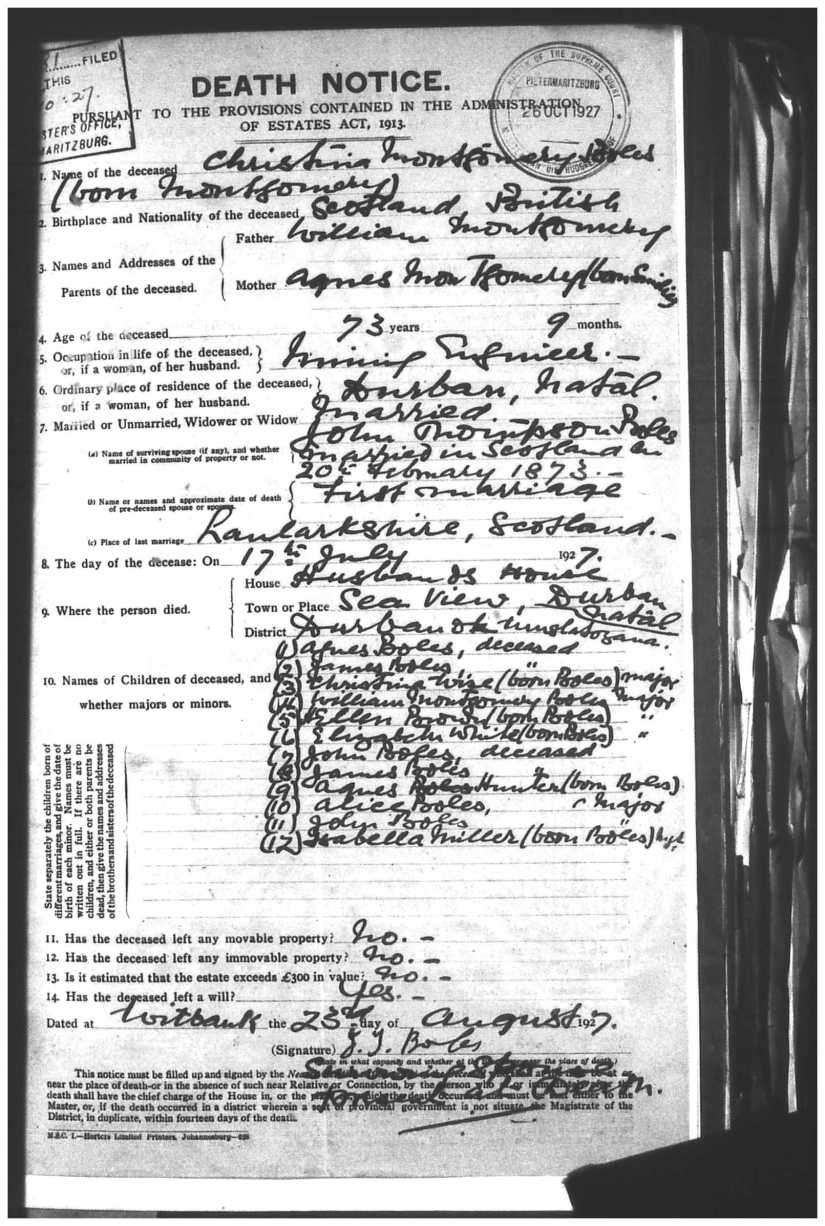 FILED
THIS
MASTER'S OFFICE,
MARITZBURG.
PIETERMARITZBURG
26 OCT 1927
DEATH NOTICE.
PURSUANT TO THE PROVISIONS CONTAINED IN THE ADMINISTRATION
OF ESTATES ACT, 1913.
1. Name of the deceased Christina Montgomery Boles
(born Montgomery)
2. Birthplace and Nationality of the deceased Scotland British
3. Names and Addresses of the Parents of the deceased.
Father William Montgomery
Mother Agnes Montgomery (born
4. Age of the deceased 73 years 9 months.
5. Occupation in life of the deceased, or, if a woman, of her husband. Mining Engineer. —
6. Ordinary place of residence of the deceased, or, if a woman, of her husband. Durban, Natal.
7. Married or Unmarried, Widower or Widow Married
(a) Name of surviving spouse (if any), and whether married in community of property or not. John Thompson Boles
married in Scotland on
20th February 1873. —
(b) Name or names and approximate date of death of pre-deceased spouse or spouses. First marriage
(c) Place of last marriage Lanlarkshire, Scotland. —
8. The day of the decease: On 17th July 1927.
9. Where the person died.
House Husbands House
Town or Place Sea View, Durban
Natal
District Durban
10. Names of Children of deceased, and whether majors or minors.
(1) Agnes Boles, deceased
(2) James Boles, "
(3) Christina Wise (born Boles) major
(4) William Montgomery Boles major
(5) Ellen Brown (born Boles) "
(6) Elizabeth White (born Boles) "
(7) John Boles, deceased
(8) James Boles "
(9) Agnes Boles Hunter (born Boles)
(10) Alice Boles, major
(11) John Boles
(12) Isabella Miller (born Boles)
State separately the children born of
different marriages, and give the date of
birth of each minor. Names must be
written out in full. If there are no
children, and either or both parents be
dead, then give the names and addresses
of the brothers and sisters of the deceased
11. Has the deceased left any movable property? No. —
12. Has the deceased left any immovable property? No. —
13. Is it estimated that the estate exceeds £300 in value? No. —
14. Has the deceased left a will? Yes. —
Dated at Witbank the 23rd day of August 1927.
(Signature) J. J. Boles
This notice must be filled up and signed by the
near the place of death—or in the absence of such near Relative or Connection, by the person who
death shall have the chief charge of the House in, or the
Master, or, if the death occurred in a district wherein a seat of provincial government is not situate, the Magistrate of the
District, in duplicate, within fourteen days of the death.
M.&C. 1.—Hortors Limited Printers, Johannesburg—